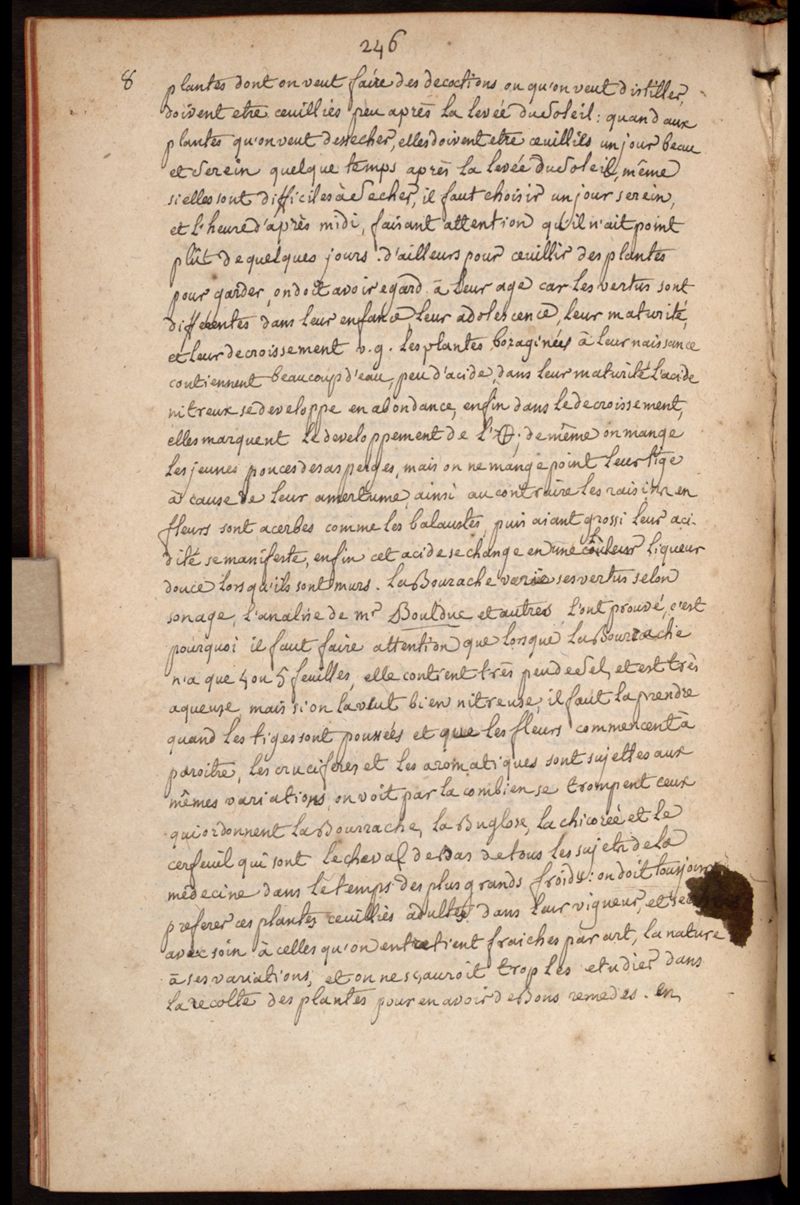 246
8
plantes dont on veut faire des decoctions ou qu'on veut distiller,
doivent etre ceuilliés peu aprés la levée du Soleil : quand aux
plantes qu'on veut dessecher, elles doivent etre ceuilliés un jour beau
et Serein quelque temps aprés la levée du Soleil, même
si elles sont difficiles à Secher, il faut choisir un jour serein,
et l'heure d'aprés midi, faisant attention qu'il n'ait point
plût de quelques jours . d'ailleurs pour ceuillir des plantes
pour garder, on doit avoir egard à leur age car les vertus sont
differentes dans leur enfance, leur adolescence, leur maturité,
et leur decroissement v.g. les plantes boraginées à leur naissance
contiennent beaucoup d'eau, peu d'acide, dans leur maturité l'acide
nitreux se developpe en abondance, enfin dans le decroissement,
elles marquent le developpement de l' ; de même on mange
les jeunes pouces des asperges, mais on ne mange point leur tige
à cause de leur amertume, ainsi au contraire les raisins en
fleurs sont acerbes comme les balaustes, puis aiant grossi leur aci-
dité se manifeste, enfin cet acide se change en une liqueur
douce lorsqu'ils sont murs . La Bourache varie ses vertus selon
son age, l'analise de mr Boulduc et autres l'ont prouvé, c'est
pourquoi il faut faire attention que lorsque la Bourrache
n'a que 4 ou 5 feuilles, elle contient trés peu de Sel, et est trés
aqueuse, mais si on la veut bien nitreuse, il faut la prendre
quand les tiges sont poussées et que les fleurs commencent à
paroitre, les cruciferes et les aromatiques sont sujettes aux
mêmes variations, on voit par la combien se trompent ceux
qui ordonnent la Bourrache, la Buglose, la chicorée et le
cerfeuil qui sont le cheval de bas de tous les sujets de la
medecine dans le temps des plus grands froids : on doit toujours
preferer ces plantes ceuilliés adultes dans leur vigueur, et
avec soin à celles qu'on entretient fraiches par art, la nature
à ses variations, et on ne sçauroit trop les etudier dans
la recolte des plantes pour en avoir de Bons remedes . en